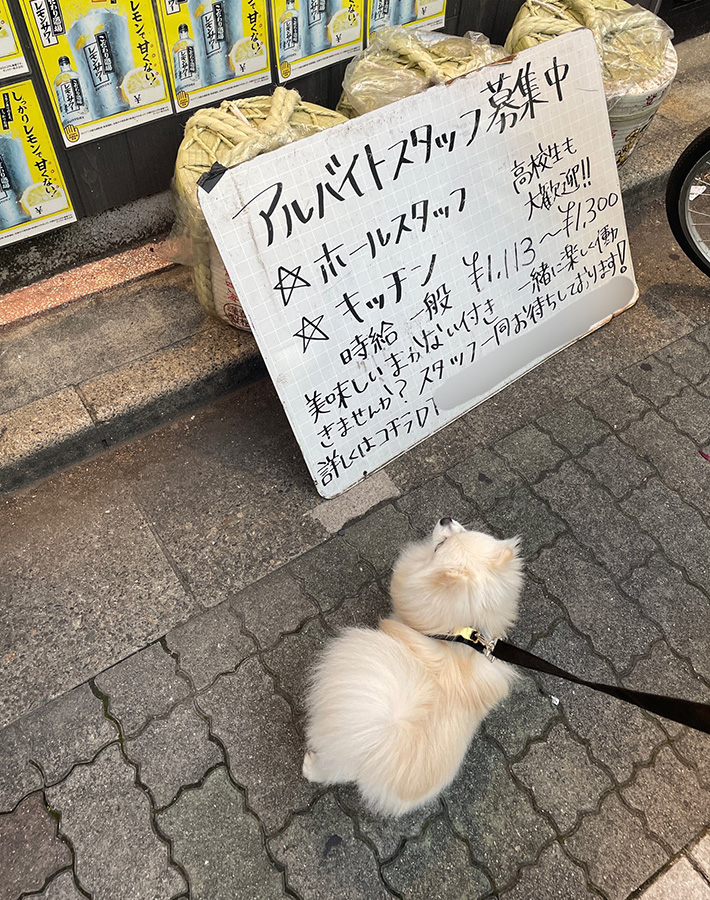 しっかりレモンで甘くない。
こだわり酒場の
レモンサワー
アルバイトスタッフ募集中
☆ホールスタッフ
高校生も
大歓迎!!
☆キッチン
時給 一般 ¥1,113〜¥1,300
美味しいまかない付き 一緒に楽しく働
きませんか? スタッフ一同お待ちしております!
詳しくはコチラ